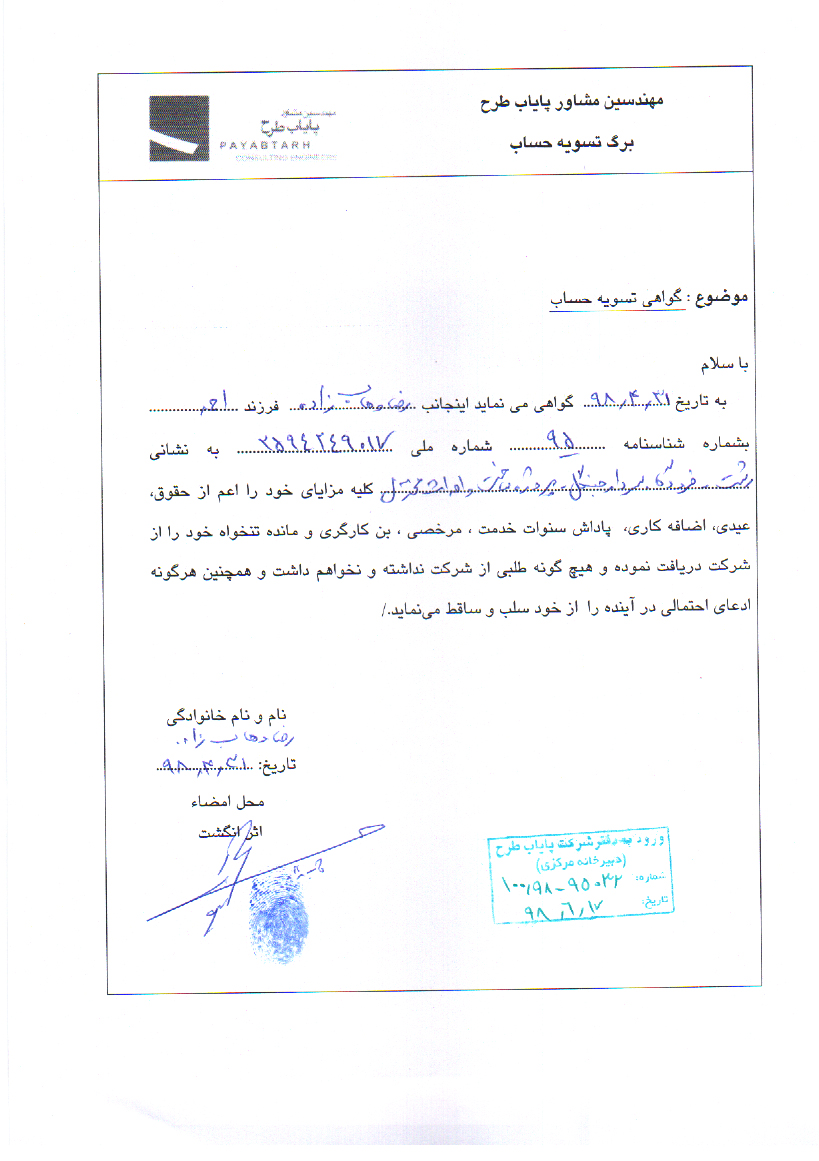 مهندسین مشاور پایاب طرح
برگ تسویه حساب
مهندسین مشاور
پایاب طرح
PAYABTARH
CONSULTING ENGINEERS
موضوع : گواهی تسویه حساب
با سلام
به تاریخ ۹۸,۴,۳۱ گواهی می نماید اینجانب رضا وهاب زاده فرزند احمد
بشماره شناسنامه ۹۵ شماره ملی ۲۵۹۴۲۴۹۰۱۷ به نشانی
رشت - فرودگاه سردار جنگل - کلیه مزایای خود را اعم از حقوق،
عیدی، اضافه کاری، پاداش سنوات خدمت ، مرخصی ، بن کارگری و مانده تنخواه خود را از
شرکت دریافت نموده و هیچ گونه طلبی از شرکت نداشته و نخواهم داشت و همچنین هرگونه
ادعای احتمالی در آینده را از خود سلب و ساقط می‌نماید./
نام و نام خانوادگی
رضا وهاب زاده
تاریخ: ۹۸,۴,۳۱
محل امضاء
اثر انگشت
ورود به دفتر شرکت پایاب طرح
(دبیرخانه مرکزی)
شماره: ۱۰۰,۹۸-۹۵۰۳۲
تاریخ: ۹۸,۶,۱۷